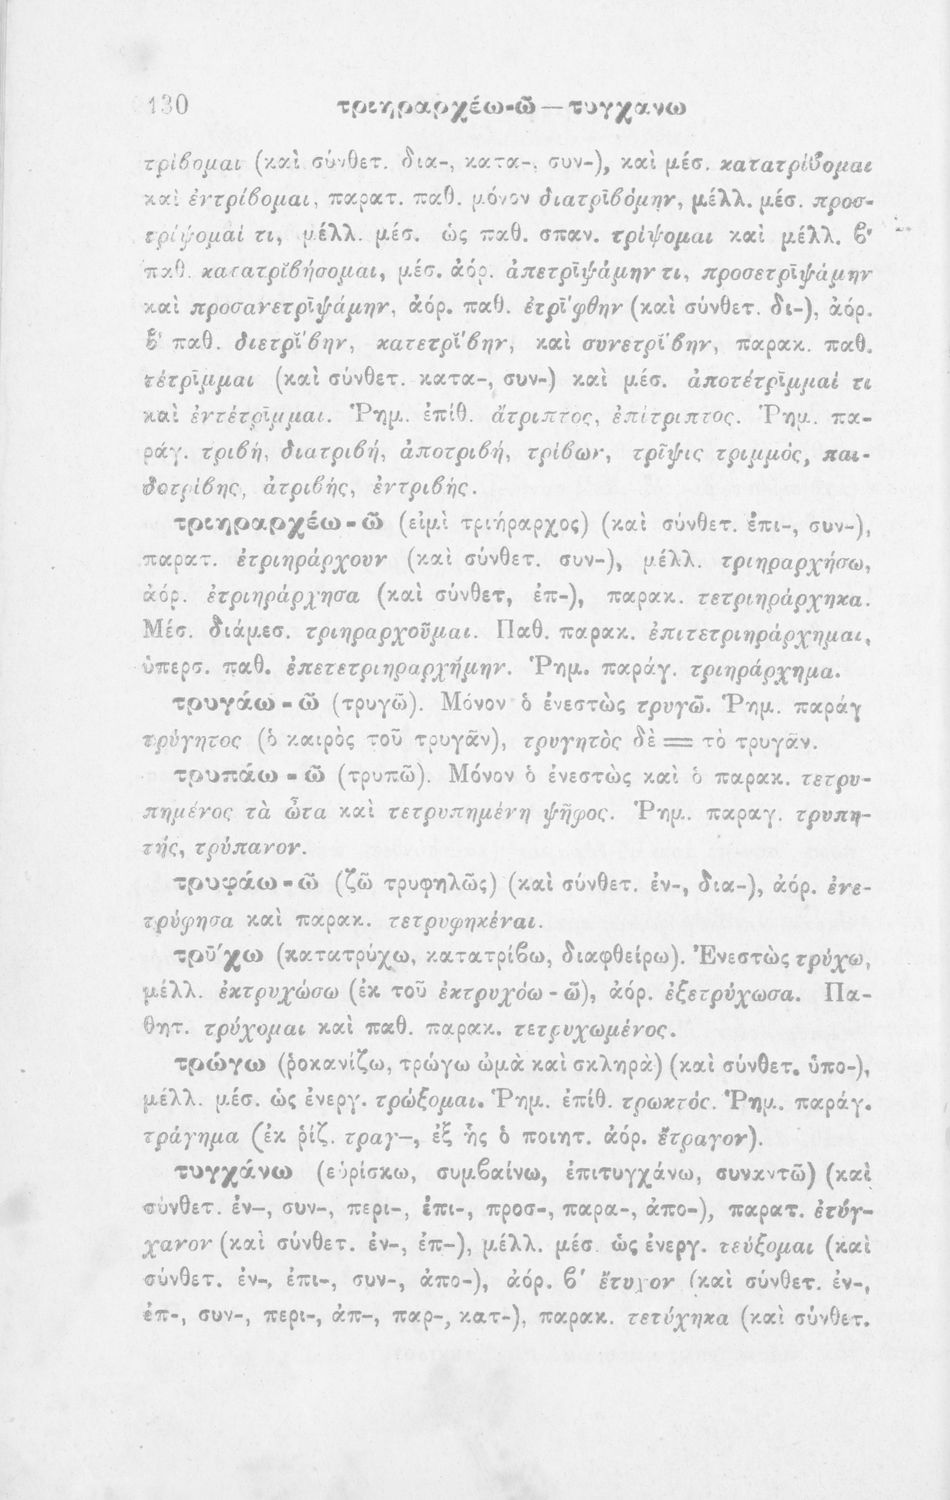 130 τριηραρχέω-ῶ — τυγχάνω
τρίβομαι (καὶ σύνθετ. δια-, κατα-, συν-), καὶ μέσ. κατατρίβομαι
καὶ ἐντρίβομαι, παρατ. παθ. μόνον διατρῑβόμην, μέλλ. μέσ. προσ-
τρίψομαί τι, μέλλ. μέσ. ὡς παθ. σπαν. τρίψομαι καὶ μέλλ. β'
παθ. κατατρῐβήσομαι, μέσ. ἀόρ. ἀπετρῑψάμην τι, προσετρῑψάμην
καὶ προσανετρῑψάμην, ἀόρ. παθ. ἐτρῑ́φθην (καὶ σύνθετ. δι-), ἀόρ.
β' παθ. διετρῐ́βην, κατετρῐ́βην, καὶ συνετρῐ́βην, παρακ. παθ.
τέτρῑμμαι (καὶ σύνθετ. κατα-, συν-) καὶ μέσ. ἀποτέτρῑμμαί τι
καὶ ἐντέτρῑμμαι. Ῥημ. ἐπίθ. ἄτριπτος, ἐπίτριπτος. Ῥημ. πα-
ράγ. τριβή, διατριβή, ἀποτριβή, τρίβων, τρῖψις τριμμός, παι-
δοτρίβης, ἀτριβής, ἐντριβής.
τριηραρχέω-ῶ (εἰμὶ τριήραρχος) (καὶ σύνθετ. ἐπι-, συν-),
παρατ. ἐτριηράρχουν (καὶ σύνθετ. συν-), μέλλ. τριηραρχήσω,
ἀόρ. ἐτριηράρχησα (καὶ σύνθετ, ἐπ-), παρακ. τετριηράρχηκα.
Μέσ. διάμεσ. τριηραρχοῦμαι. Παθ. παρακ. ἐπιτετριηράρχημαι,
ὑπερσ. παθ. ἐπετετριηραρχήμην. Ῥημ. παράγ. τριηράρχημα.
τρυγάω-ῶ (τρυγῶ). Μόνον ὁ ἐνεστὼς τρυγῶ. Ῥημ. παράγ
τρύγητος (ὁ καιρὸς τοῦ τρυγᾶν), τρυγητὸς δὲ = τὸ τρυγᾶν.
τρυπάω-ῶ (τρυπῶ). Μόνον ὁ ἐνεστὼς καὶ ὁ παρακ. τετρυ-
πημένος τὰ ὦτα καὶ τετρυπημένη ψῆφος. Ῥημ. παραγ. τρυπη-
τής, τρύπανον.
τρυφάω-ῶ (ζῶ τρυφηλῶς) (καὶ σύνθετ. ἐν-, δια-), ἀόρ. ἐνε-
τρύφησα καὶ παρακ. τετρυφηκέναι.
τρῡ́χω (κατατρύχω, κατατρίβω, διαφθείρω). Ἐνεστὼς τρύχω,
μέλλ. ἐκτρυχώσω (ἐκ τοῦ ἐκτρυχόω-ῶ), ἀόρ. ἐξετρύχωσα. Πα-
θητ. τρύχομαι καὶ παθ. παρακ. τετρυχωμένος.
τρώγω (ῥοκανίζω, τρώγω ὠμὰ καὶ σκληρὰ) (καὶ σύνθετ. ὑπο-),
μέλλ. μέσ. ὡς ἐνεργ. τρώξομαι. Ῥημ. ἐπίθ. τρωκτός. Ῥημ. παράγ.
τράγημα (ἐκ ῥίζ. τραγ-, ἐξ ἧς ὁ ποιητ. ἀόρ. ἔτραγον).
τυγχάνω (εὑρίσκω, συμβαίνω, ἐπιτυγχάνω, συναντῶ) (καὶ
σύνθετ. ἐν-, συν-, περι-, ἐπι-, προσ-, παρα-, ἀπο-), παρατ. ἐτύγ-
χανον (καὶ σύνθετ. ἐν-, ἐπ-), μέλλ. μέσ. ὡς ἐνεργ. τεύξομαι (καὶ
σύνθετ. ἐν-, ἐπι-, συν-, ἀπο-), ἀόρ. β' ἔτυχον (καὶ σύνθετ. ἐν-,
ἐπ-, συν-, περι-, ἀπ-, παρ-, κατ-), παρακ. τετύχηκα (καὶ σύνθετ.